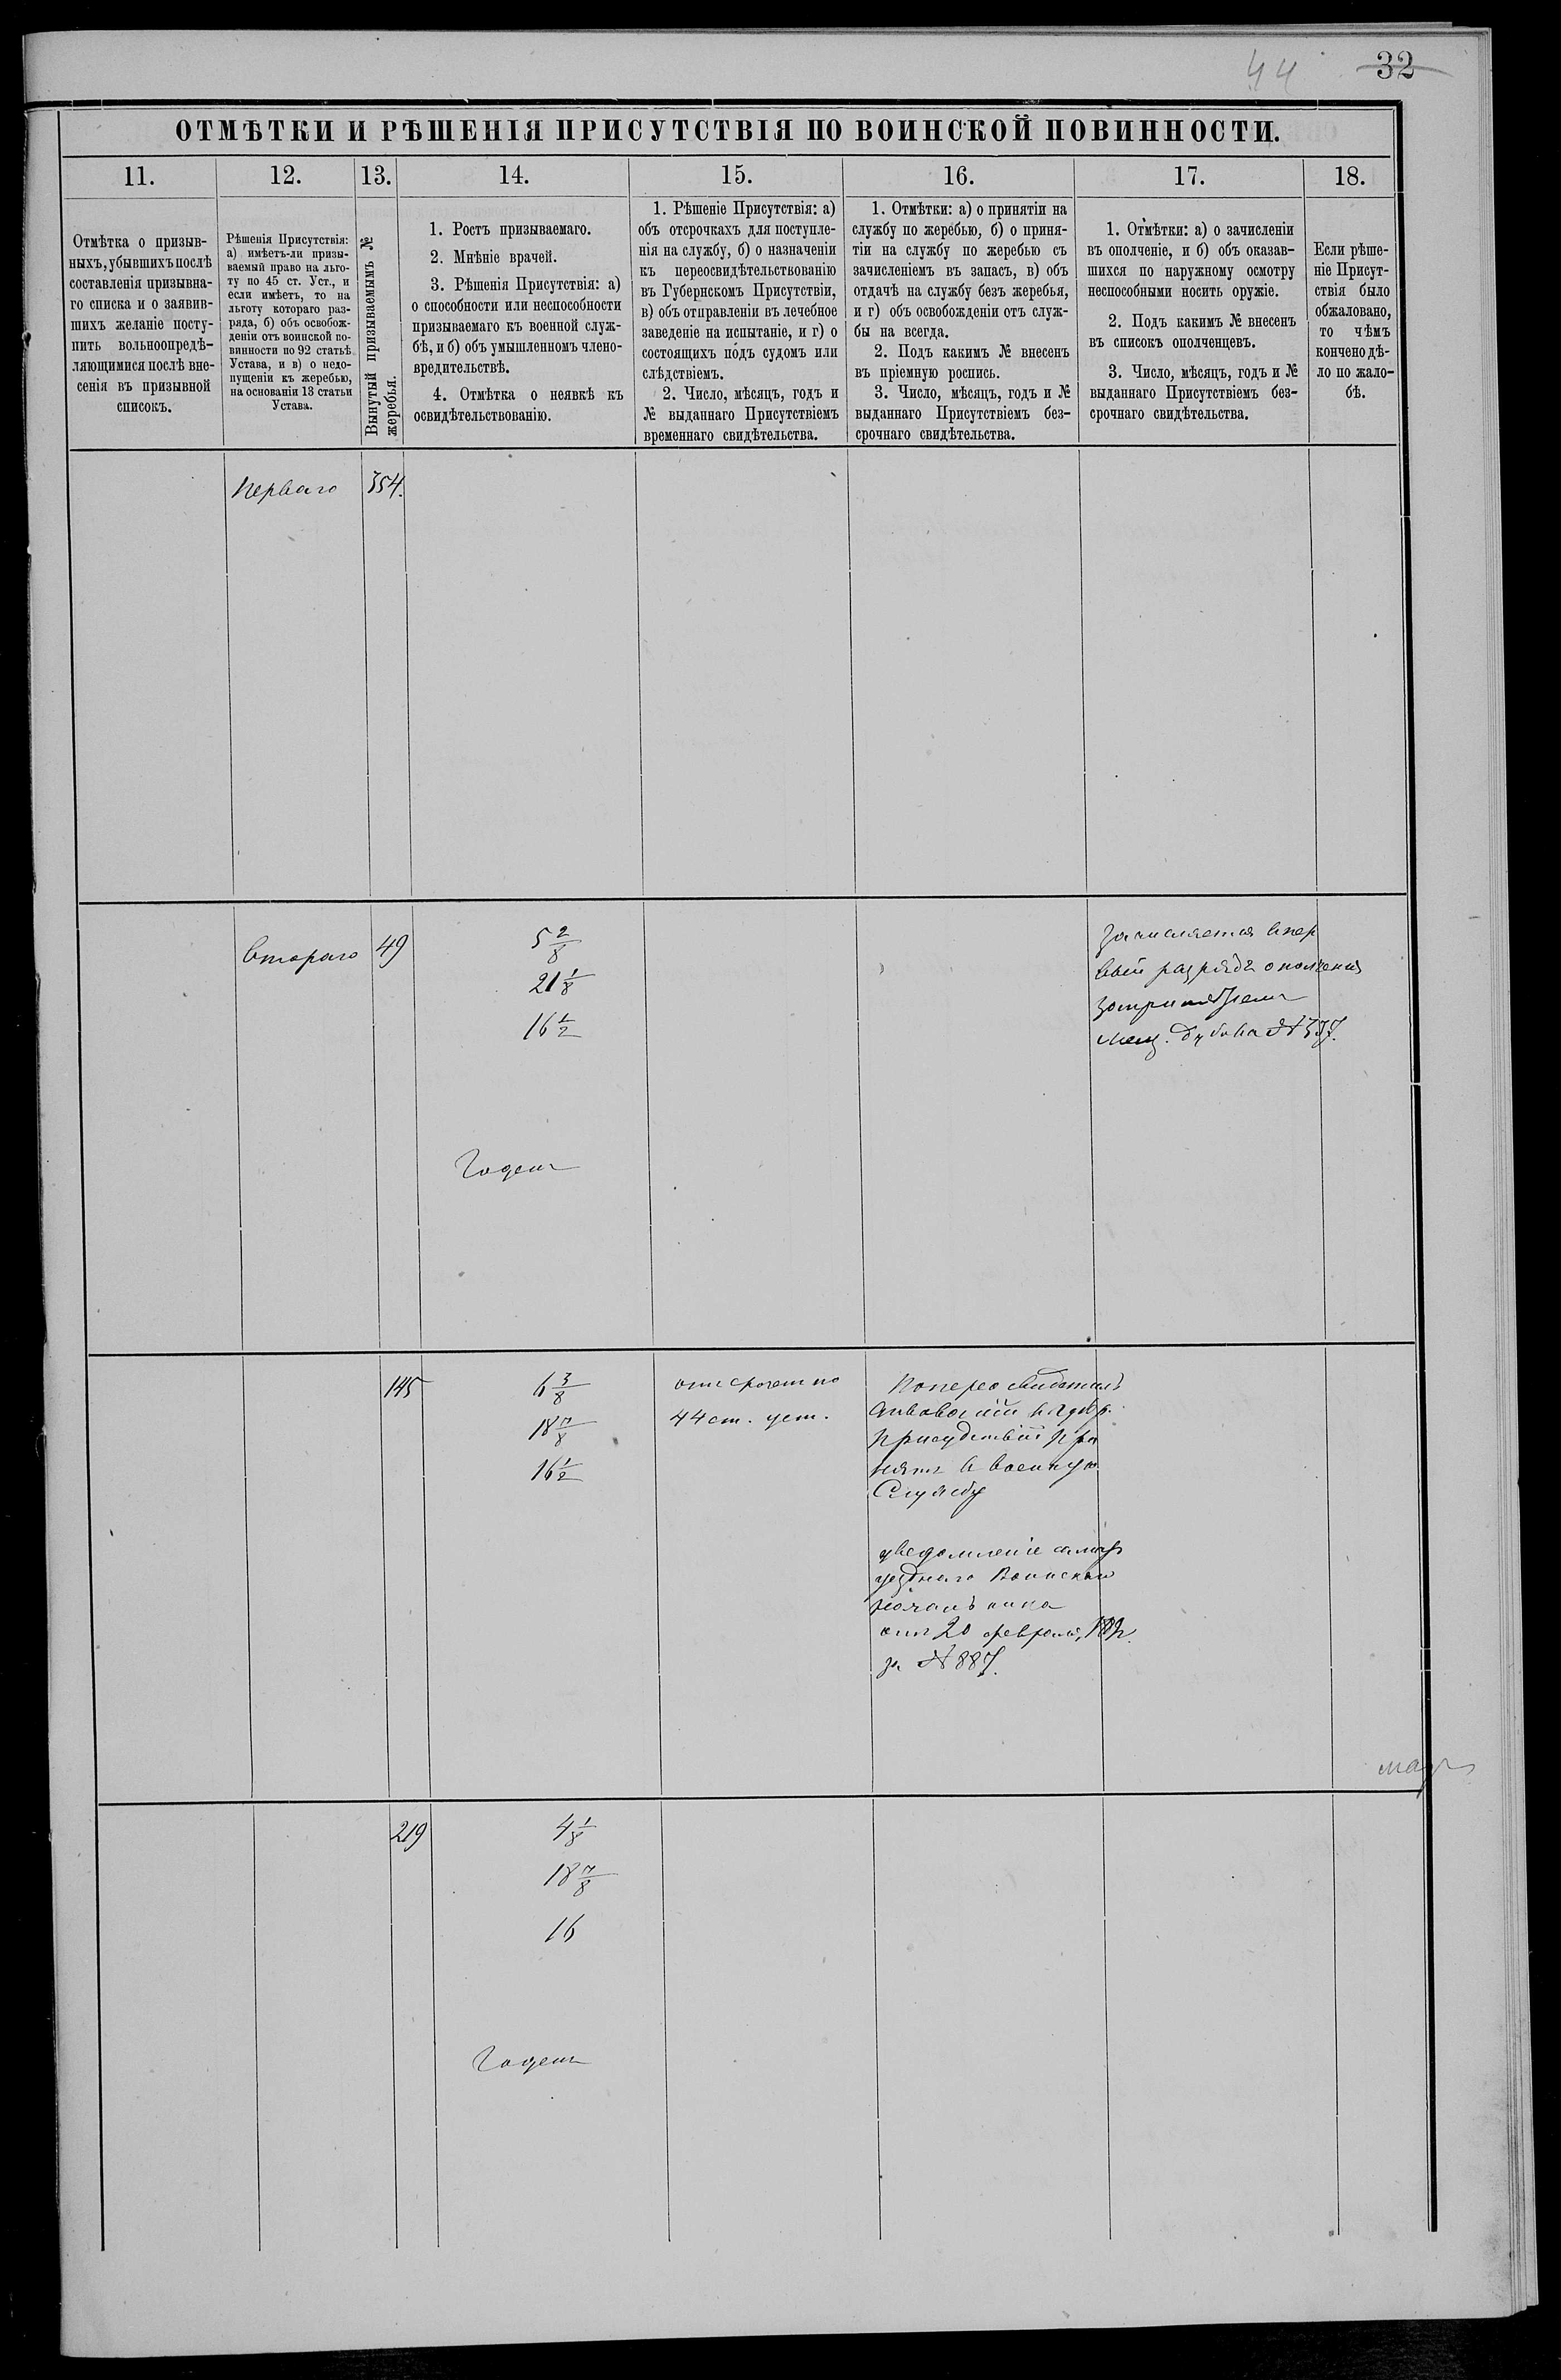 44 32
ОТМѢТКИ И РѢШЕНІЯ ПРИСУТСТВІЯ ПО ВОИНСКОЙ ПОВИННОСТИ.
11.
Отмѣтка о призыв-
ныхъ, убывшихъ послѣ
составленія призывна-
го списка и о заявив-
шихъ желаніе посту-
пить вольноопредѣ-
ляющимися послѣ вне-
сенія въ призывной
списокъ.
12.
Рѣшенія Присутствія:
а) имѣетъ-ли призы-
ваемый право на льго-
ту по 45 ст. Уст., и
если имѣетъ, то на
льготу котораго раз-
ряда, б) объ освобож-
деніи отъ воинской по-
винности по 92 статьѣ
Устава, и в) о недо-
пущеніи къ жеребью,
на основаніи 13 статьи
Устава.
13.
Вынутый призываемымъ №
жеребья.
14.
1. Ростъ призываемаго.
2. Мнѣніе врачей.
3. Рѣшенія Присутствія: а)
о способности или неспособности
призываемаго къ военной служ-
бѣ, и б) объ умышленномъ члено-
вредительствѣ.
4. Отмѣтка о неявкѣ къ
освидѣтельствованію.
15.
1. Рѣшеніе Присутствія: а)
объ отсрочкахъ для поступле-
нія на службу, б) о назначеніи
къ переосвидѣтельствованію
въ Губернскомъ Присутствіи,
в) объ отправленіи въ лечебное
заведеніе на испытаніе, и г) о
состоящихъ подъ судомъ или
слѣдствіемъ.
2. Число, мѣсяцъ, годъ и
№ выданнаго Присутствіемъ
временнаго свидѣтельства.
16.
1. Отмѣтки: а) о принятіи на
службу по жеребью, б) о приня-
тіи на службу по жеребью съ
зачисленіемъ въ запасъ, в) объ
отдачѣ на службу безъ жеребья,
и г) объ освобожденіи отъ служ-
бы на всегда.
2. Подъ какимъ № внесенъ
въ пріемную роспись.
3. Число, мѣсяцъ, годъ и №
выданнаго Присутствіемъ без-
срочнаго свидѣтельства.
17.
1. Отмѣтки: а) о зачисленіи
въ ополченіе, и б) объ оказав-
шихся по наружному осмотру
неспособными носить оружіе.
2. Подъ какимъ № внесенъ
въ списокъ ополченцевъ.
3. Число, мѣсяцъ, годъ и №
выданнаго Присутствіемъ без-
срочнаго свидѣтельства.
18.
Если рѣше-
ніе Присут-
ствія было
обжаловано,
то чѣмъ
кончено дѣ-
ло по жало-
бѣ.
Перваго 354.
Втораго 49
5 2/8
21 1/8
16 1/2
Годенъ
Зачисляется впер
вый разрядъ ополченія
№ 377.
145
6 3/8
18 7/8
16 1/2
отсроченъ по
44 ст. уст.
Попереосвидѣтель
присудствіи при
нятъ в военную
Службу
уведомленіе
уѣзднаго Воинскаго
Начальника
отъ 20 февраля
за № 887.
219
4 1/8
18 7/8
16
Годенъ